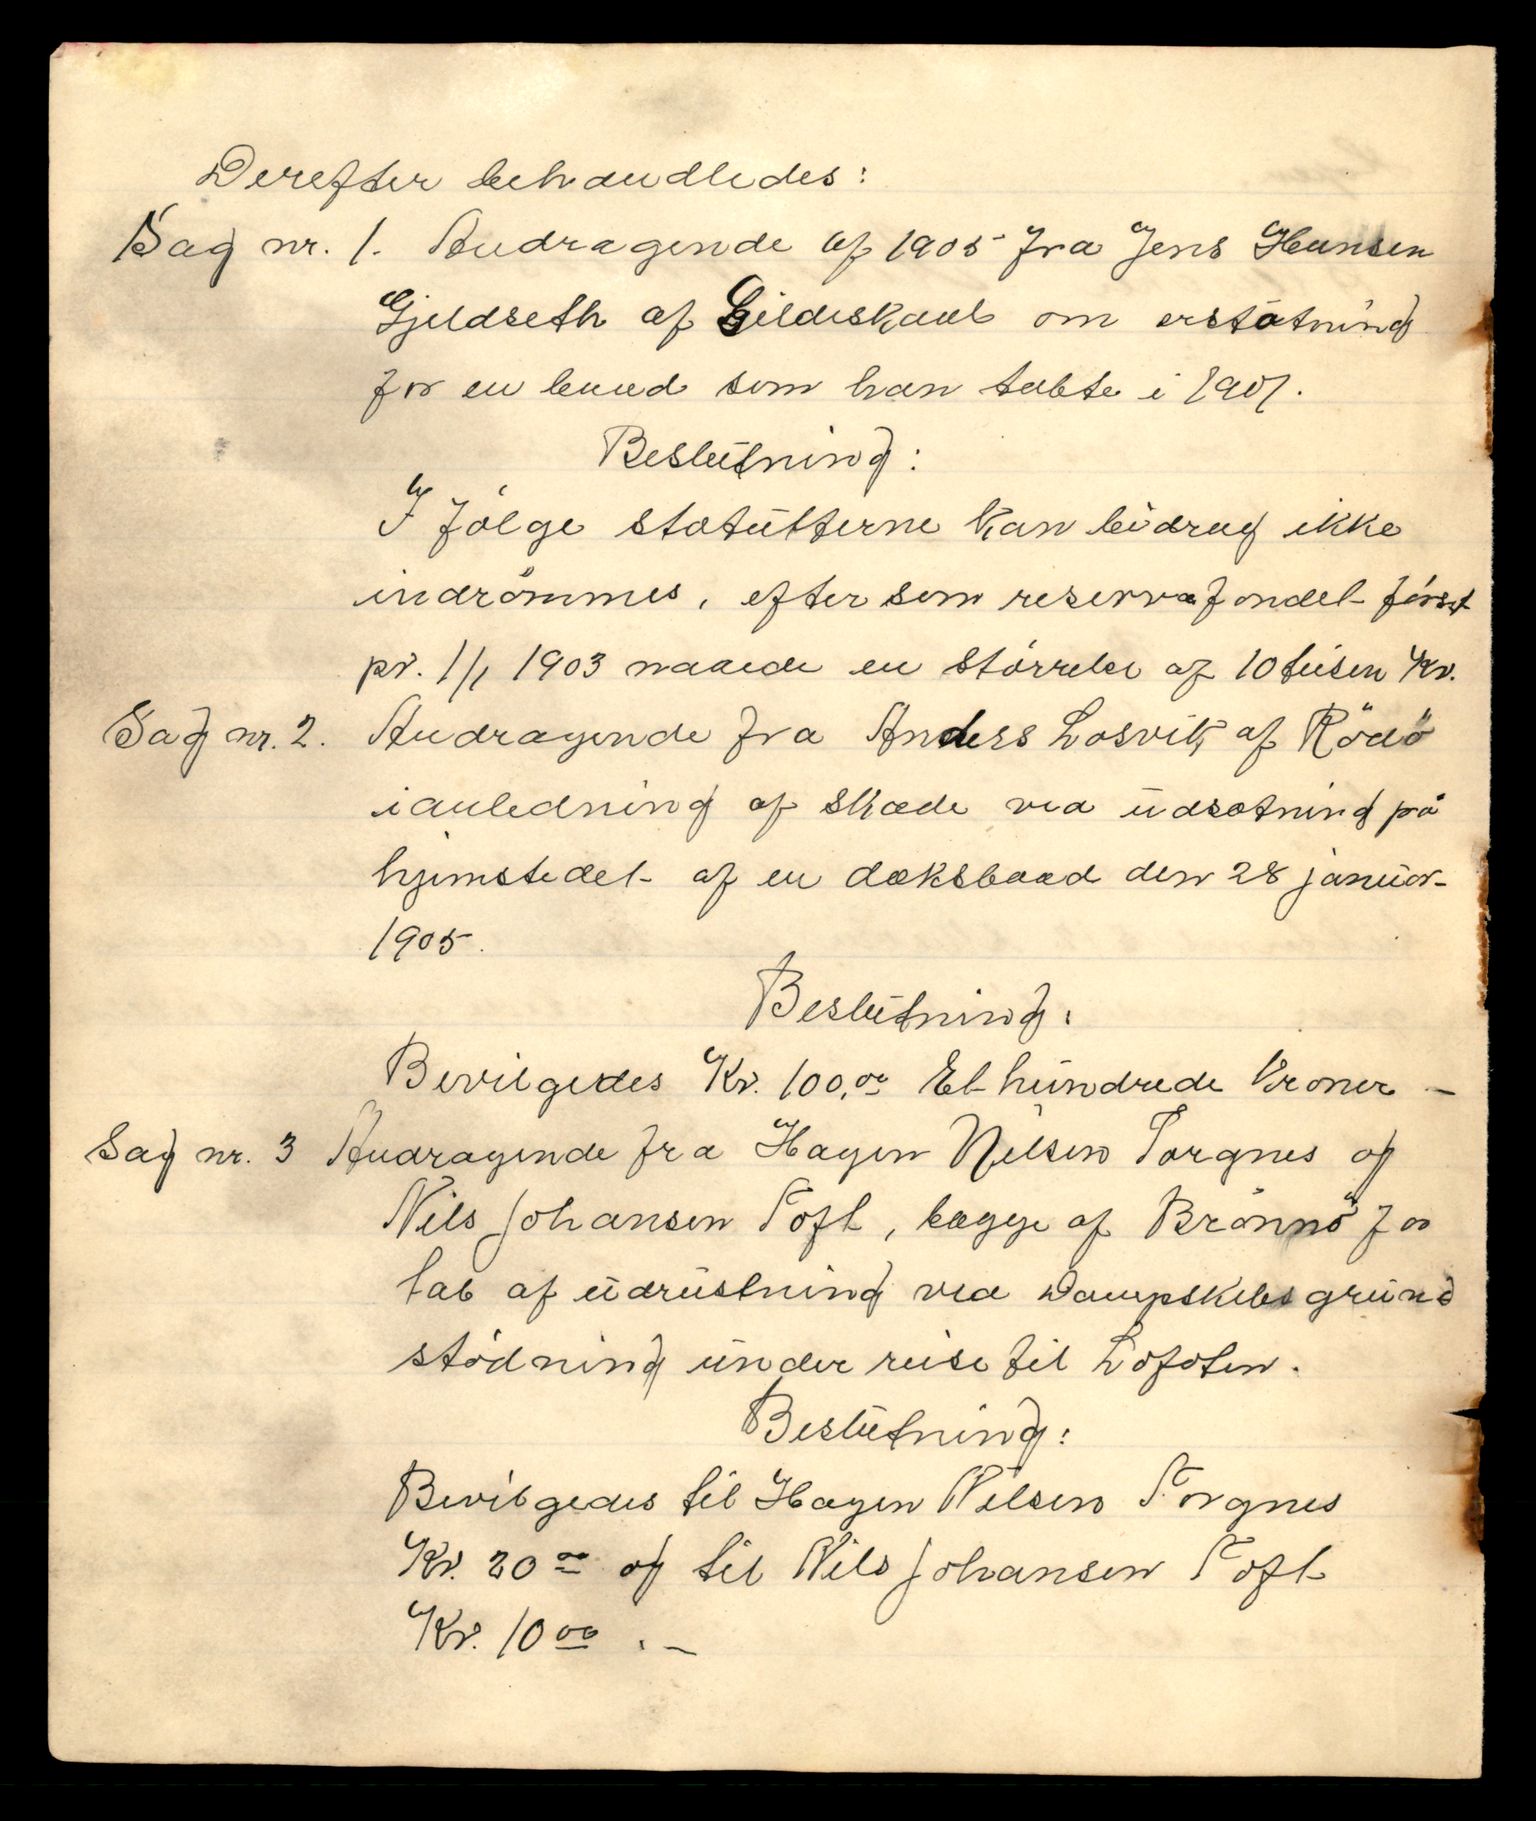 Derefter behandledes:
Sag nr. 1. Andragende af 1905 fra Jens Hansen
Gjeldseth af Gildeskaal om erstatning
for en baad som han tabte i 1901.
Beslutning:
I følge statutterne kan bidrag ikke
indrømmes, efter som reservefondet først
pr. 1/1 1903 naaede en størrelse af 10 tusen Kr.
Sag nr. 2. Andragende fra Anders Losvik af Rödö
i anledning af skade ved udsætning på
hjemstedet af en dæksbaad den 28 januar
1905.
Beslutning:
Bevilgedes Kr. 100,00 Et hundrede Kroner –
Sag nr. 3 Andragende fra Hagen Nilsen Torgnes og
Nils Johansen Toft, begge af Brönnö for
tab af udrustning ved Dampskibsgrund
stødning under reise til Lofoten.
Beslutning:
Bevilgedes til Hagen Nilsen Torgnes
Kr. 20 00 og til Nils Johansen Toft
Kr. 10 00 . –